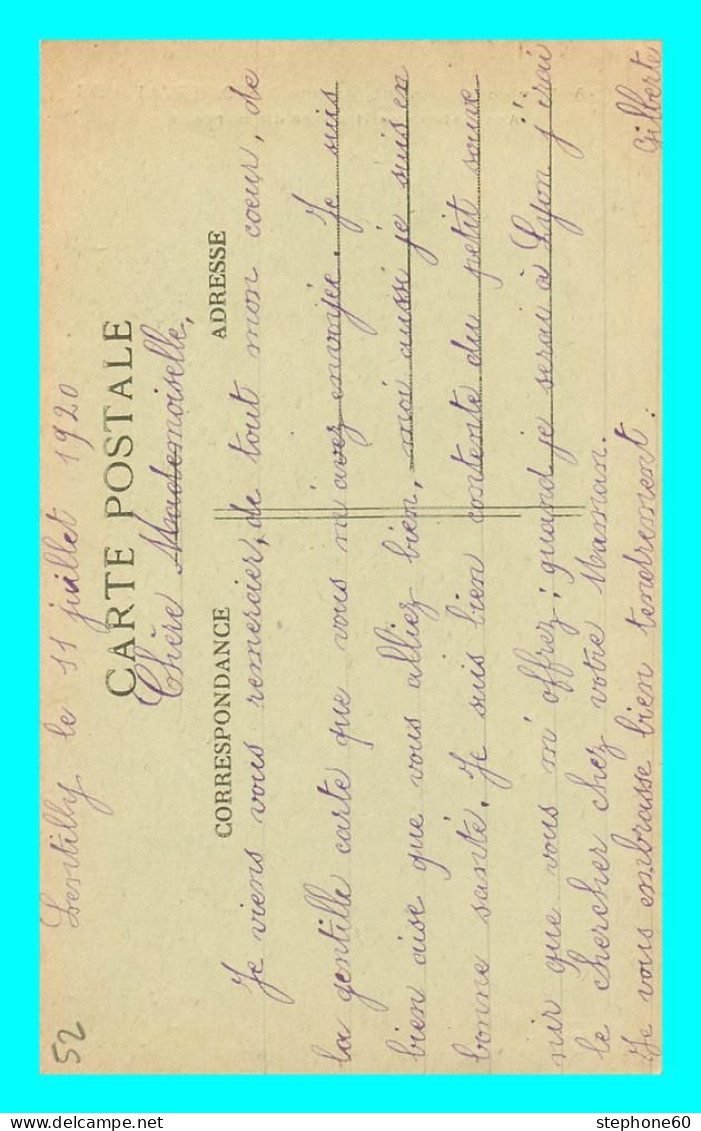 Lentilly le 11 juillet 1920
CARTE POSTALE
Chère Mademoiselle,
CORRESPONDANCE
ADRESSE
Je viens vous remercier, de tout mon cœur, de
la gentille carte que vous m'avez envoyée. Je suis
bien aise que vous alliez bien, moi aussi je suis en
bonne santé. Je suis bien contente du petit souve-
nir que vous m'offrez; quand je serai à Lyon j'irai
le chercher chez votre Maman.
Je vous embrasse bien tendrement.
Gilberte
52
stephone60